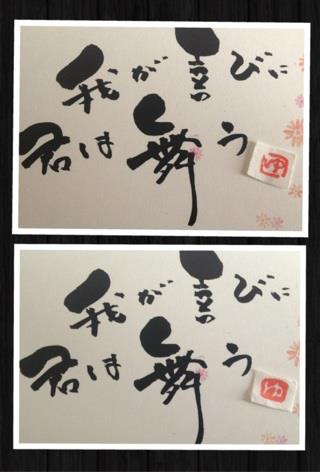 我が喜びに
君は舞う
我が喜びに
君は舞う
ゆ